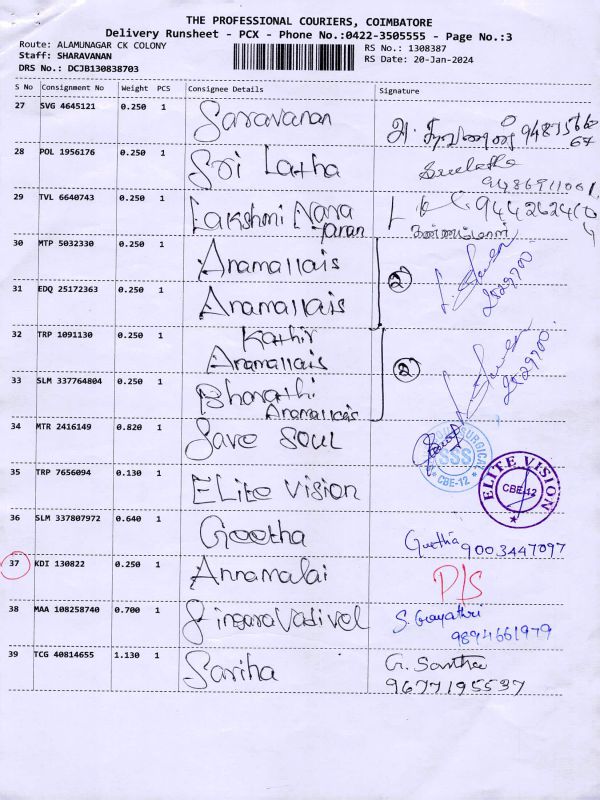 THE PROFESSIONAL COURIERS, COIMBATORE
Delivery Runsheet - PCX - Phone No.:0422-3505555 - Page No.:3
Route: ALAMUNAGAR CK COLONY
RS No.: 1308387
Staff: SHARAVANAN
RS Date: 20-Jan-2024
DRS No.: DCJB130838703
S No Consignment No Weight PCS Consignee Details Signature
27 SVG 4645121 0.250 1 Saravanan
28 POL 1956176 0.250 1 Sri Latha
29 TVL 6640743 0.250 1 Lakshmi Nara
yanan
30 MTP 5032330 0.250 1 Annamallais
31 EDQ 25172363 0.250 1 Annamallais
2
32 TRP 1091130 0.250 1 Kathir
Annamallais
33 SLM 337764804 0.250 1 Bharathi
Annamallais
2
34 MTR 2416149 0.820 1 Save SOUL
SURGICAL
SSS
CBE-12
35 TRP 7656094 0.130 1 ELite vision
ELITE VISION
CBE-12
36 SLM 337807972 0.640 1 Geetha Geetha 9003447097
37 KDI 130822 0.250 1 Annamalai D/S
38 MAA 108258740 0.700 1 Singaravadivel S. Gayathri
9894661979
39 TCG 40814655 1.130 1 Sariha G. Santhi
9677195537